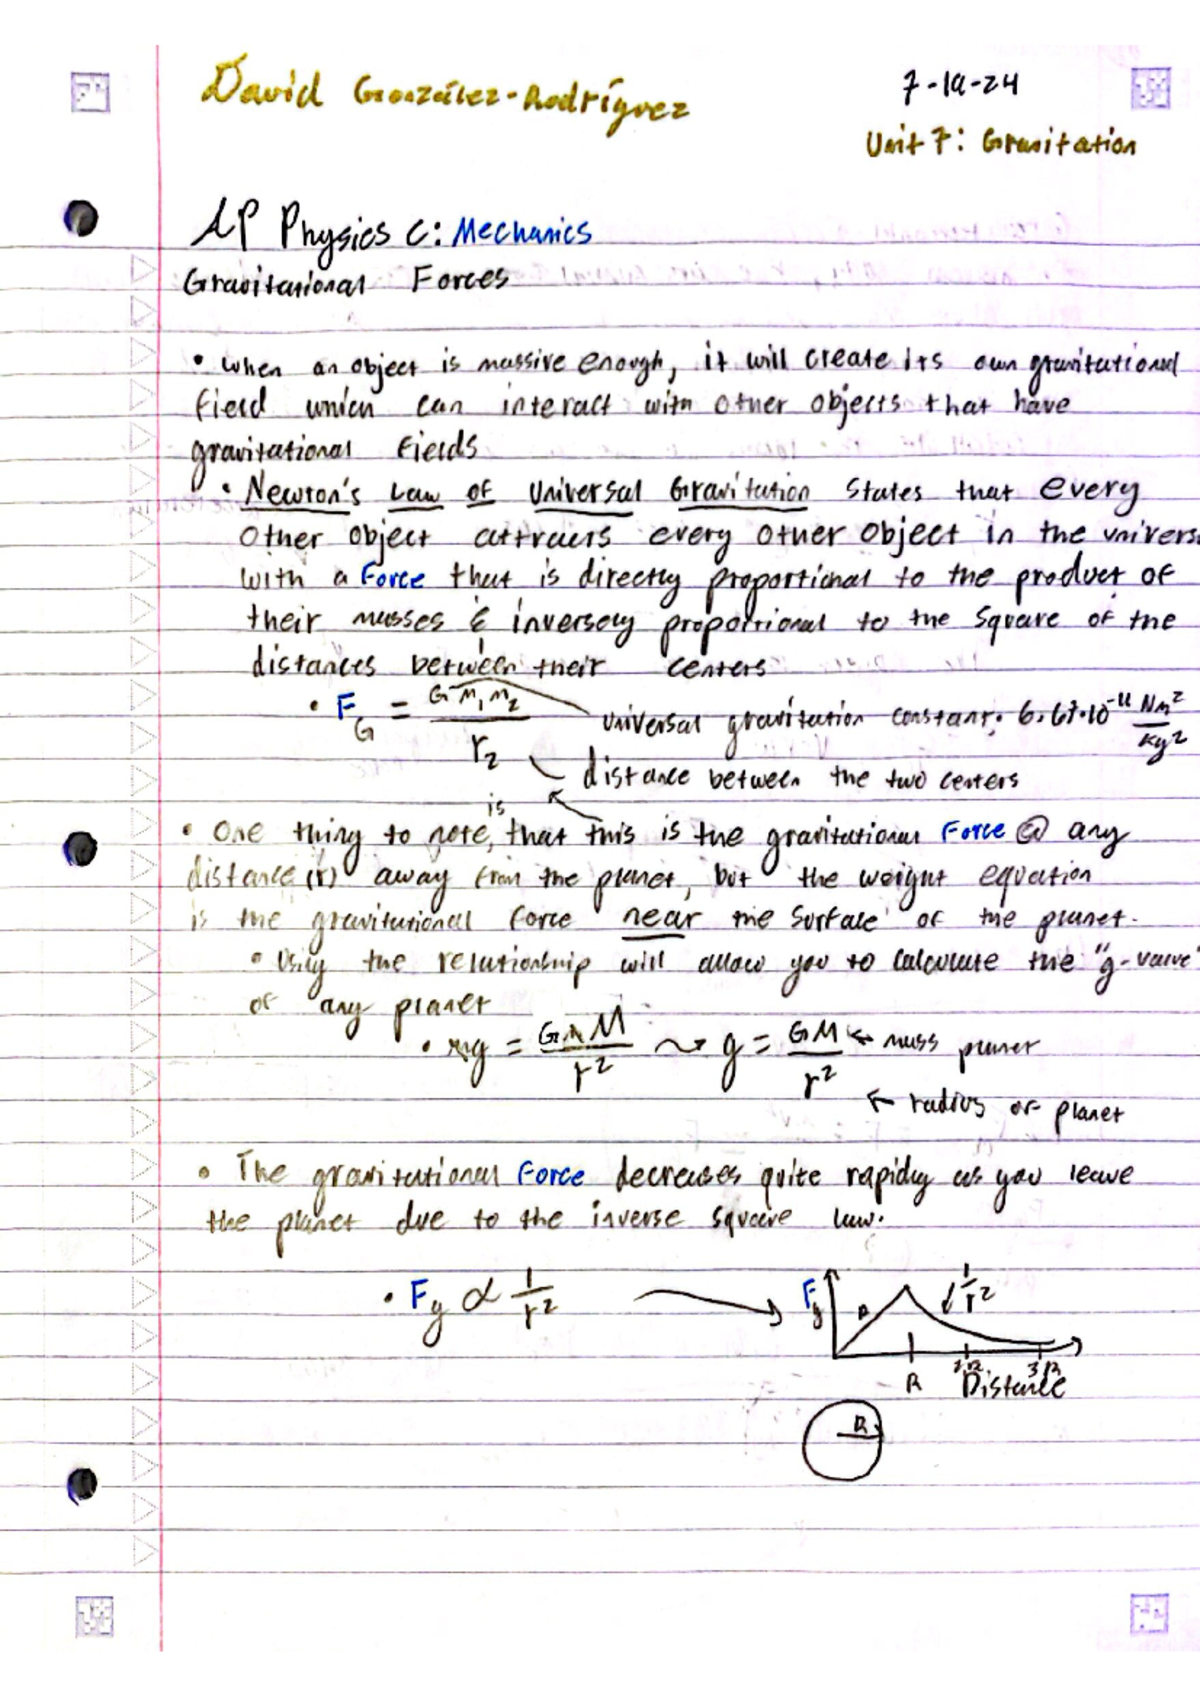 David González-Rodríguez
7-19-24
Unit 7: Gravitation
AP Physics C: Mechanics
Gravitational Forces
• When an object is massive enough, it will create its own gravitational
field which can interact with other objects that have
gravitational fields
• Newton's Law of Universal Gravitation states that every
other object attracts every other object in the univers
with a force that is directly proportional to the product of
their masses & inversely proportional to the square of the
distances between their centers
• F_G = G m₁ m₂ / r₂
universal gravitation constant: 6.67·10⁻¹¹ Nm²/kg²
distance between the two centers
is
• One thing to note, that this is the gravitational force @ any
distance (r) away from the planet, but the weight equation
is the gravitational force near the surface of the planet.
• Using the relationship will allow you to calculate the "g-value"
of any planet
• mg = GmM / r² → g = GM / r² ← mass planet
← radius of planet
• The gravitational force decreases quite rapidly as you leave
the planet due to the inverse square law.
• Fg ∝ 1/r²
Fg
1/r²
R 2R 3R
Distance
R